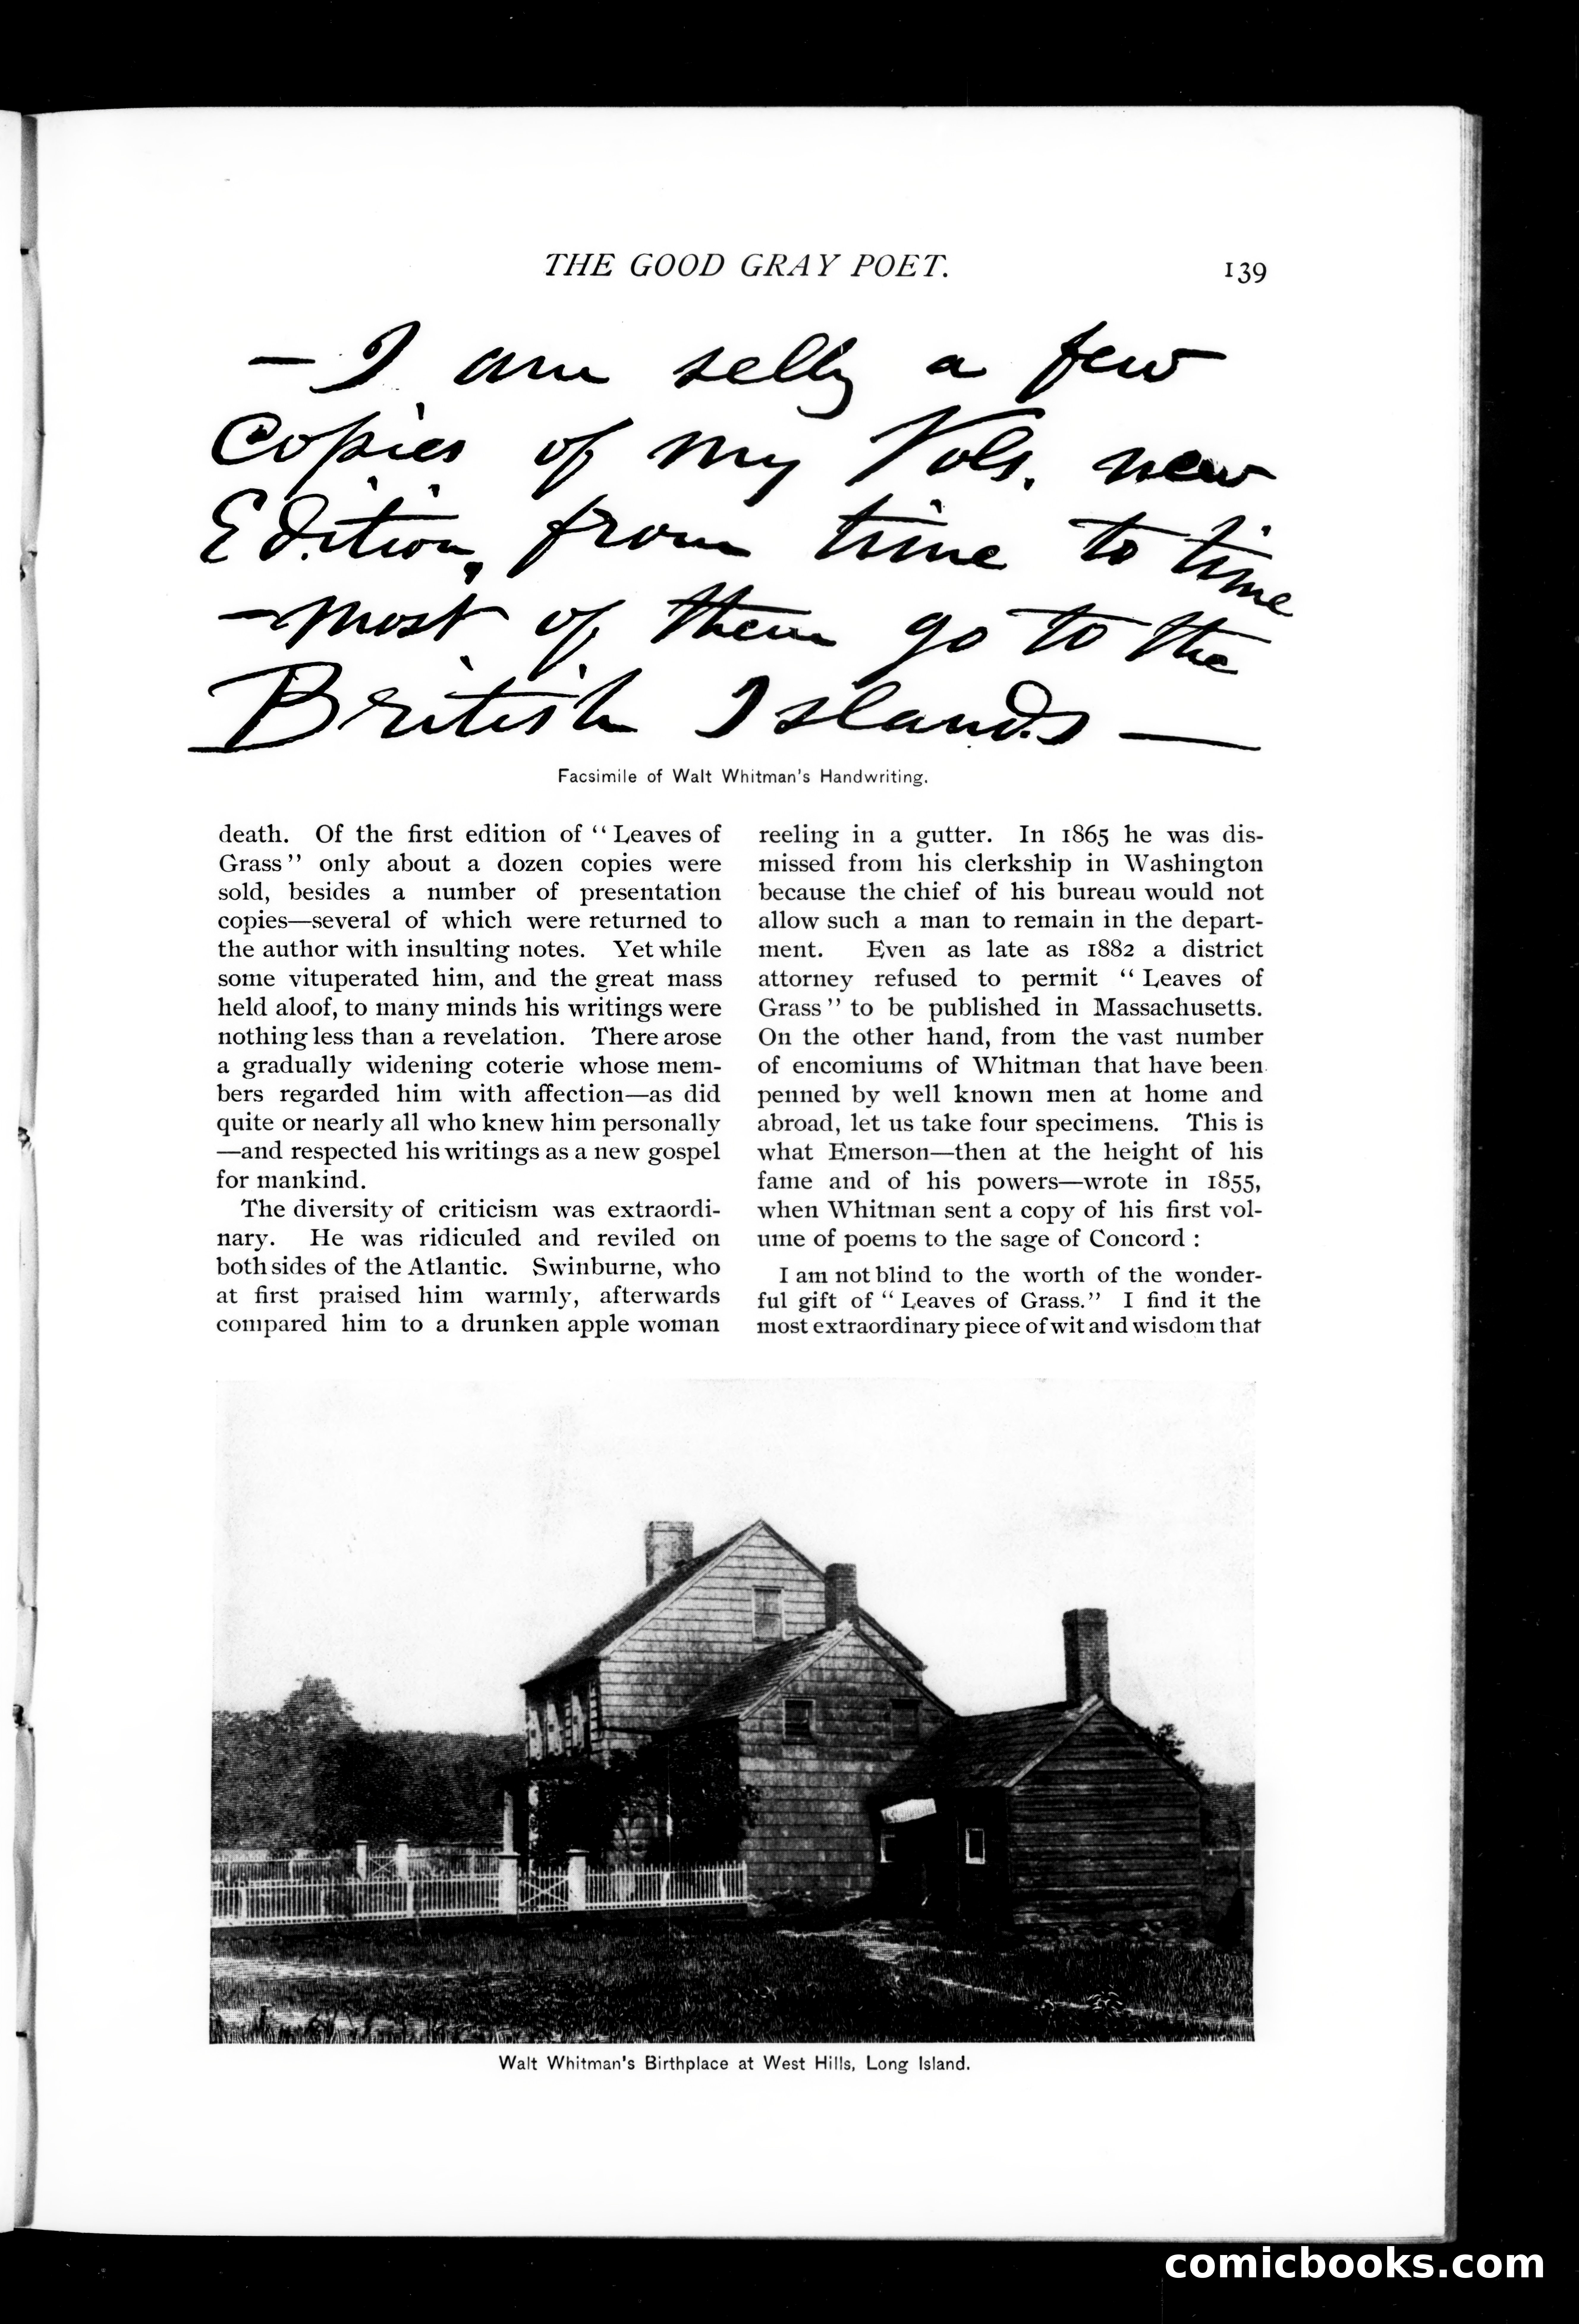 THE GOOD GRAY POET.
139
— I am selly a few
Copies of my Vols. new
Edition, from time to time
— most of them go to the
British Islands —
Facsimile of Walt Whitman's Handwriting.
death. Of the first edition of “Leaves of
Grass” only about a dozen copies were
sold, besides a number of presentation
copies—several of which were returned to
the author with insulting notes. Yet while
some vituperated him, and the great mass
held aloof, to many minds his writings were
nothing less than a revelation. There arose
a gradually widening coterie whose mem-
bers regarded him with affection—as did
quite or nearly all who knew him personally
—and respected his writings as a new gospel
for mankind.
The diversity of criticism was extraordi-
nary. He was ridiculed and reviled on
both sides of the Atlantic. Swinburne, who
at first praised him warmly, afterwards
compared him to a drunken apple woman
reeling in a gutter. In 1865 he was dis-
missed from his clerkship in Washington
because the chief of his bureau would not
allow such a man to remain in the depart-
ment. Even as late as 1882 a district
attorney refused to permit “Leaves of
Grass” to be published in Massachusetts.
On the other hand, from the vast number
of encomiums of Whitman that have been
penned by well known men at home and
abroad, let us take four specimens. This is
what Emerson—then at the height of his
fame and of his powers—wrote in 1855,
when Whitman sent a copy of his first vol-
ume of poems to the sage of Concord :
I am not blind to the worth of the wonder-
ful gift of “Leaves of Grass.” I find it the
most extraordinary piece of wit and wisdom that
Walt Whitman's Birthplace at West Hills, Long Island.
comicbooks.com